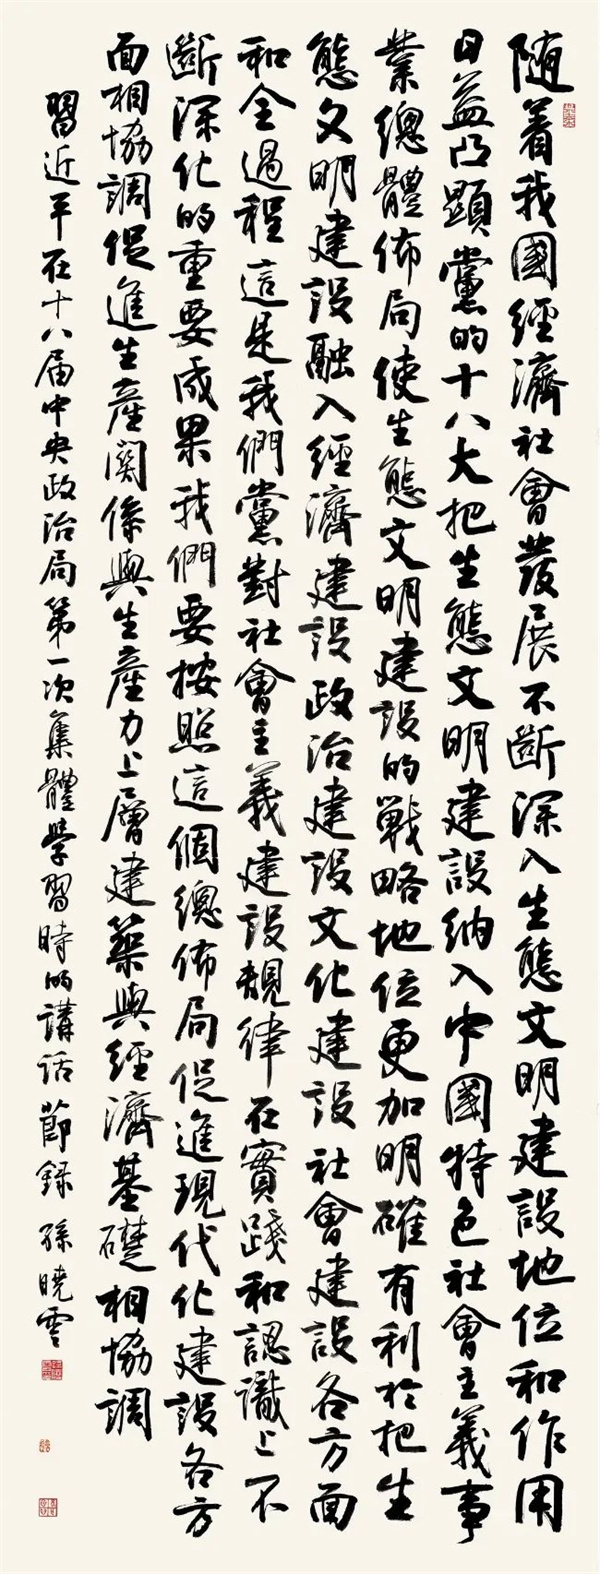 随着我國經濟社會發展不斷深入生態文明建設地位和作用
日益凸顯黨的十八大把生態文明建設納入中國特色社會主義事
業總體佈局使生態文明建設的戰略地位更加明確有利於把生
態文明建設融入經濟建設政治建設文化建設社會建設各方面
和全過程這是我們黨對社會主義建設規律在實踐和認識上不
斷深化的重要成果我們要按照這個總佈局促進現代化建設各方
面相協調促進生產關係與生產力上層建築與經濟基礎相協調
習近平在十八届中央政治局第一次集體學習時的講話 節録 孫曉雲